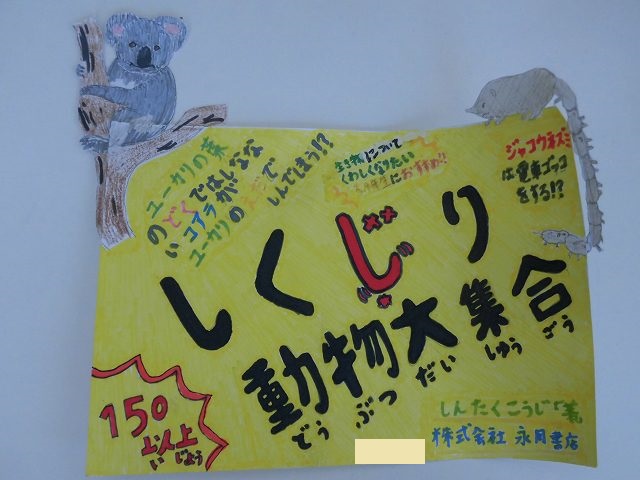 ユーカリの葉
のどくではしなな
いコアラが
ユーカリの
しんでしまう!?
生き物について
くわしくなりたい
におすすめ!!
ジャコウネズミ
は電車ゴッコ
をする!?
しくじり
動物大集合
どうぶつだいしゅうごう
150
以上
いじょう
しんたくこうじ
株式会社 永岡書店